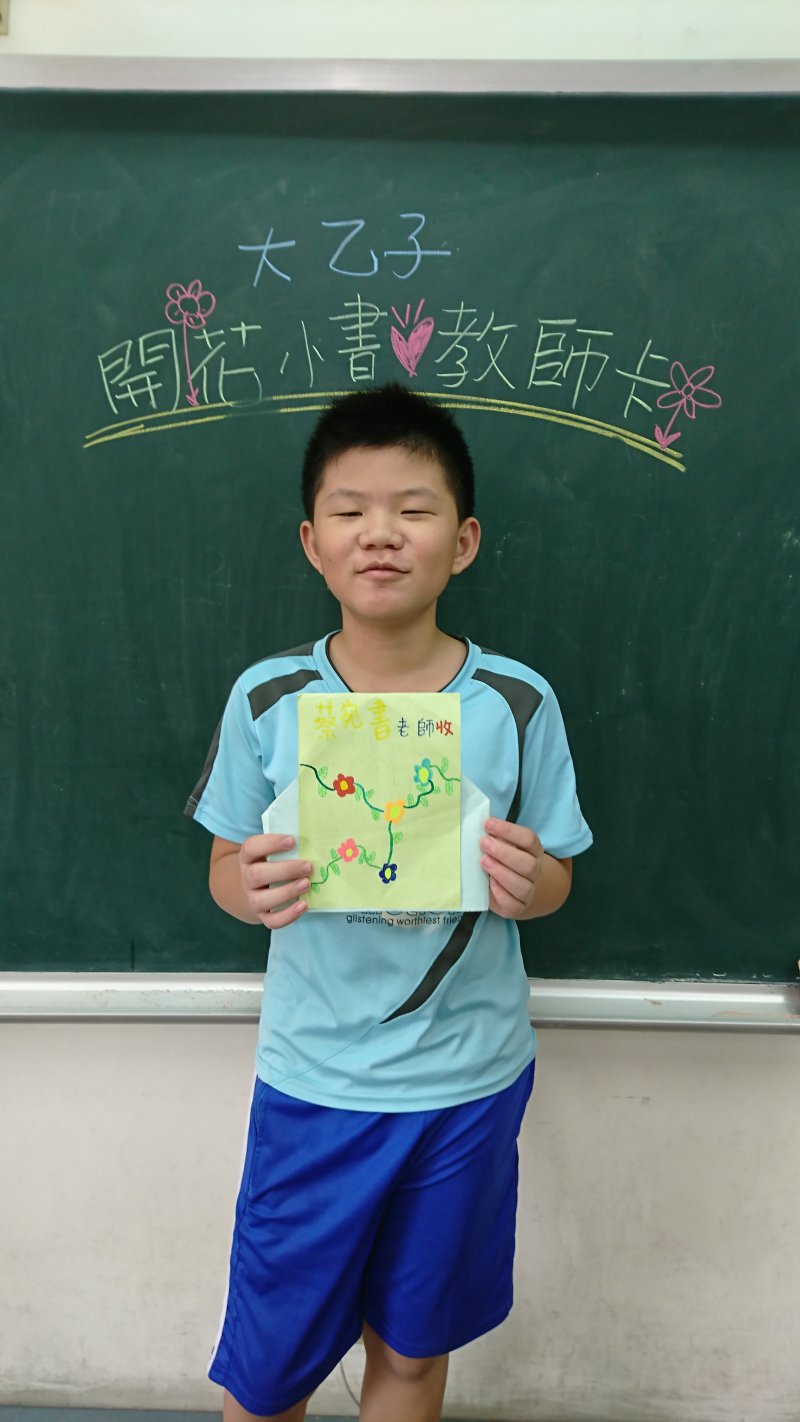 大乙子
開花小書教師卡
蔡宛書老師收
glistening worthiest frie